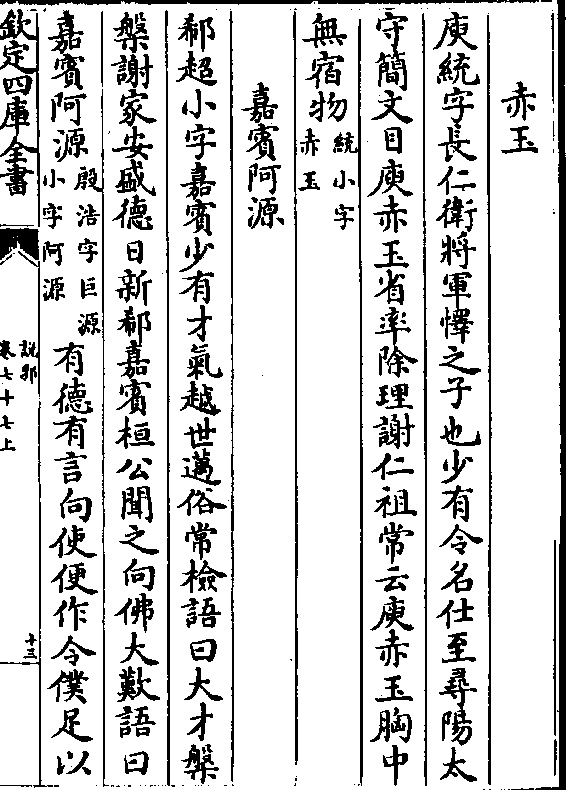 赤玉
庾統字長仁衛將軍懌之子也少有令名仕至尋陽太
守簡文目庾赤玉省率除理謝仁祖常云庾赤玉胸中
無宿物統小字赤玉
嘉賓阿源
郗超小字嘉賓少有才氣越世邁俗常檢語曰大才槃
槃謝家安盛德日新郗嘉賓桓公聞之向佛大歎語曰
嘉賓阿源殷浩字巨源小字阿源有德有言向使便作令僕足以
欽定四庫全書
說郛
卷七十七上
十三